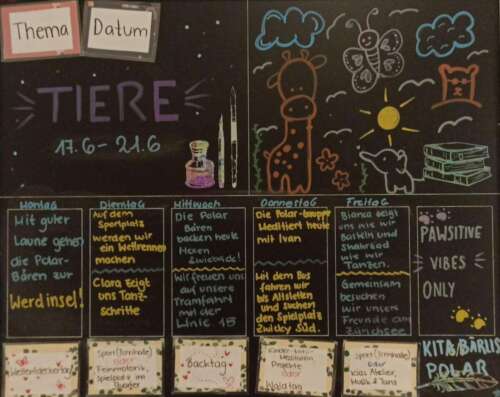 Thema
Datum
TIERE
17.6 - 21.6
Montag
Mit guter
Laune gehen
die Polar-
Bären zur
Werdinsel!
Dienstag
Auf dem
Sportplatz
werden wir
ein Wettrennen
machen
Clara zeigt
uns Tanz-
schritte
Mittwoch
Die Polar
Bären
backen heute
Wir freuen uns
auf unsere
Tramfahrt
mit der
Linie 15
Donnerstag
Die Polar-Gruppe
Meditiert heute
mit Ivan
Mit dem Bus
fahren wir
bis Altstetten
und suchen
den Spielplatz
Zwicky Süd.
Freitag
Bianca zeigt
uns wie wir
und
wie wir
Tanzen.
Gemeinsam
besuchen
wir unsere
Freunde am
Zürichsee
PAWSITIVE
VIBES
ONLY
KITA BÄRLIS
POLAR
Sport (Turnhalle)
oder
Feinmotorik,
Spielpost im
Quartier
Backtag
Kinder-Natur
Meditation,
Projekte
oder
Waldtag
Sport (Turnhalle)
oder
Kids Atelier,
Musik & Tanz